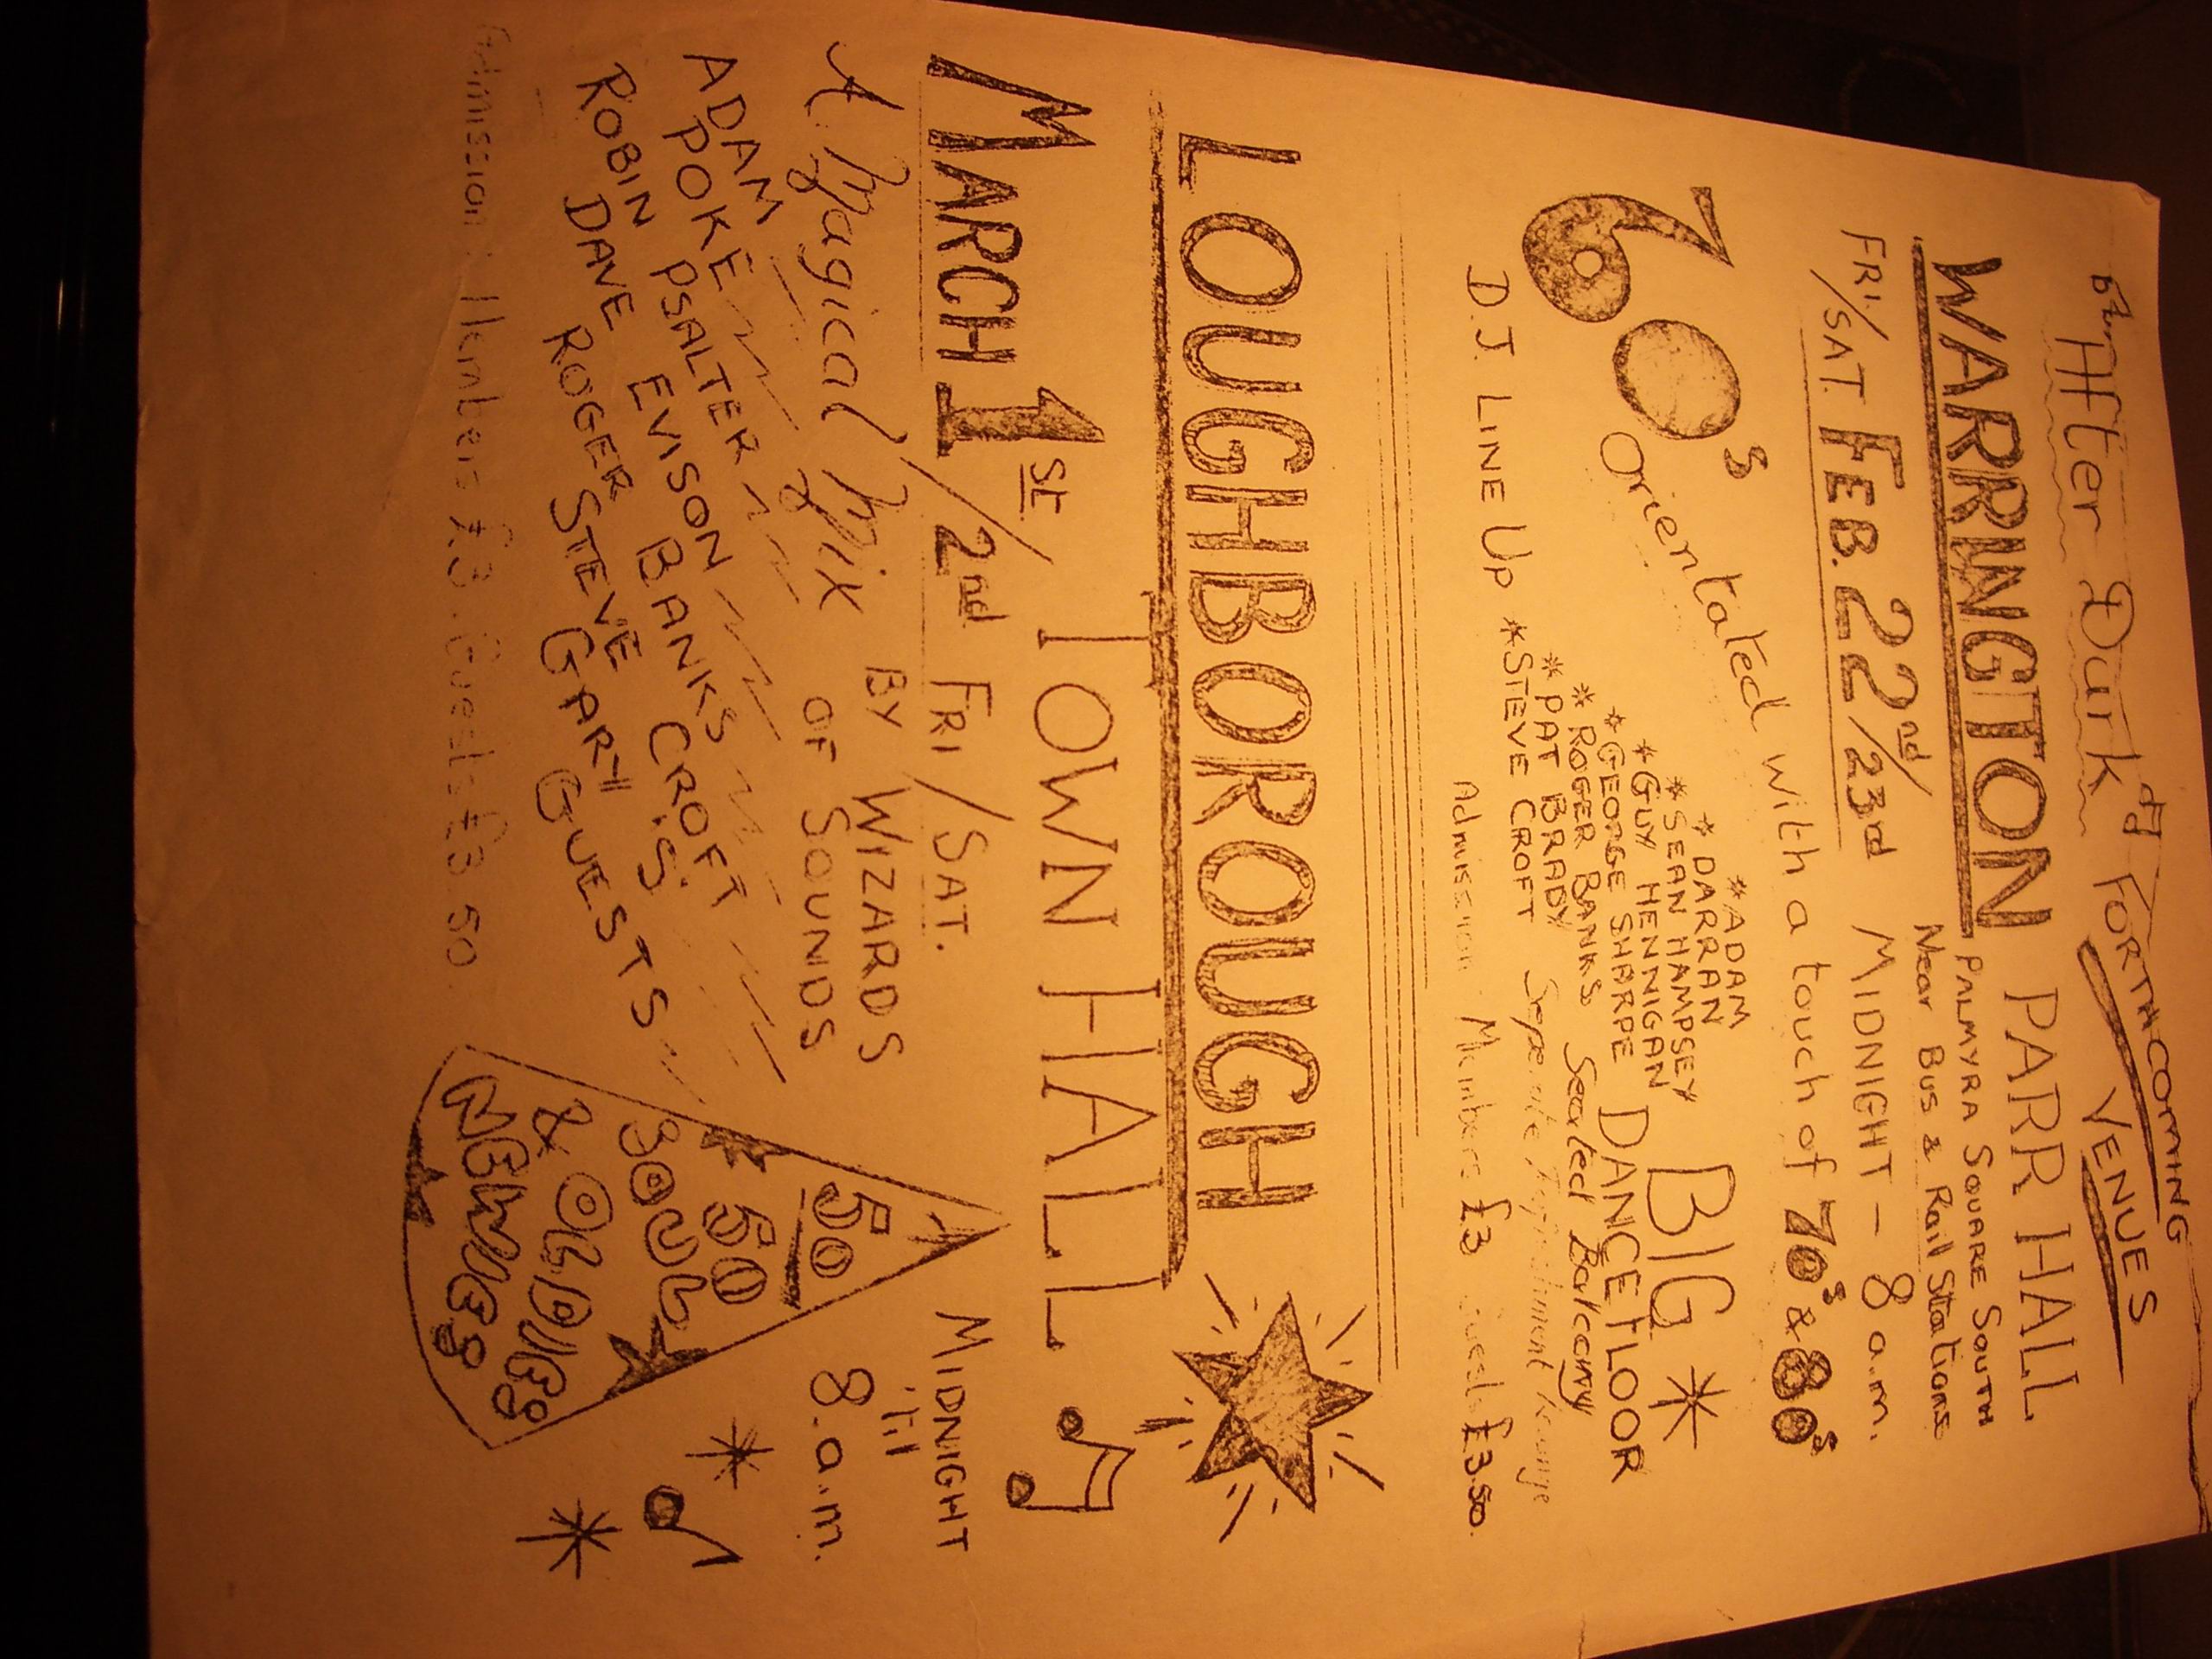 After Dark FORTHCOMING
VENUES
WARRINGTON PARR HALL
PALMYRA SQUARE SOUTH
Near Bus & Rail Stations
FRI./SAT. FEB. 22nd/23rd MIDNIGHT - 8 a.m.
60s orientated with a touch of 70s & 80s
*ADAM
* DARRAN
* SEAN HAMPSEY
* GUY HENNIGAN
* GEORGE SHARPE
* ROGER BANKS
* PAT BRADY
D.J. LINE UP *STEVE CROFT
BIG *
DANCE FLOOR
Seated Balcony
Seperate Refreshment lounge
Admission Members £3 Guests £3.50.
LOUGHBOROUGH
TOWN HALL
MARCH 1st/2nd FRI/SAT.
MIDNIGHT
'til
8.a.m.
A Magical Mix BY WIZARDS
OF SOUNDS
ADAM PSALTER EVISON BANKS CROFT
POKE C.S.
ROBIN DAVE ROGER STEVE GARY GUESTS
50
50
SOUL
& OLDIES
NEWIES
Admission: Members £3. Guests £3.50.